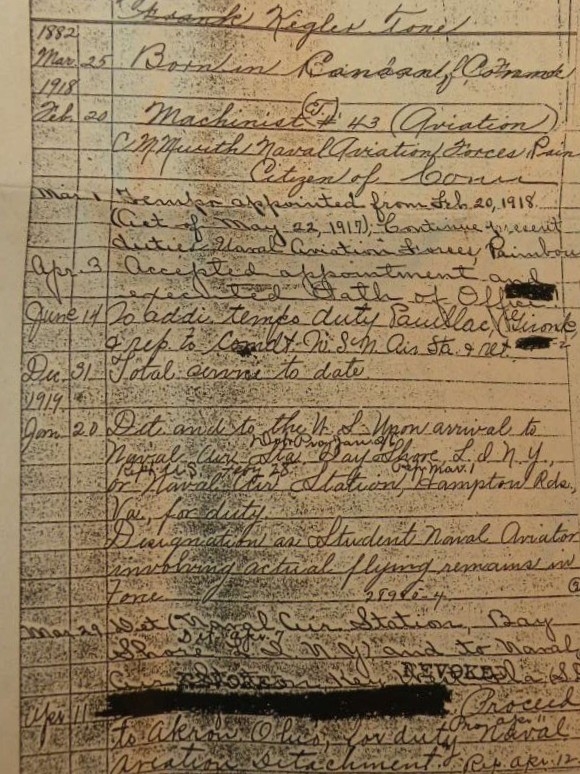 Frank Kegler Tone
1882
Mar. 25 Born in
1918
Feb. 20 Machinist (T.) # 43 (Aviation)
with Naval Aviation Forces
Citizen of Conn
Mar. 1 Tempo appointed from Feb. 20, 1918.
(Act of May 22, 1917). Continue present
duties Naval Aviation Forces
Apr. 3 Accepted appointment and
executed Oath of Office.
June 14 To addi temp duty Pauillac, Gironde,
& rep to Comdt. U.S.N. Air Sta. & ret.
Dec. 31 Total service to date
1919
Jan. 20 Det. and to the U.S. Upon arrival to
Naval Air Sta Bay Shore, L.I N.Y.,
Feb. 28 Mar. 1
or Naval Air Station, Hampton Rds,
Va, for duty
Designation as Student Naval Aviator
involving actual flying remains in
Force
Mar 29 Det Naval Air Station, Bay
Det. Apr. 7
Shore L I N.Y. and to Naval
REVOKED REVOKED
Air Key
Apr. 11 Proceed
to Akron, Ohio, for duty Naval
Aviation Detachment. Rep. Apr. 12